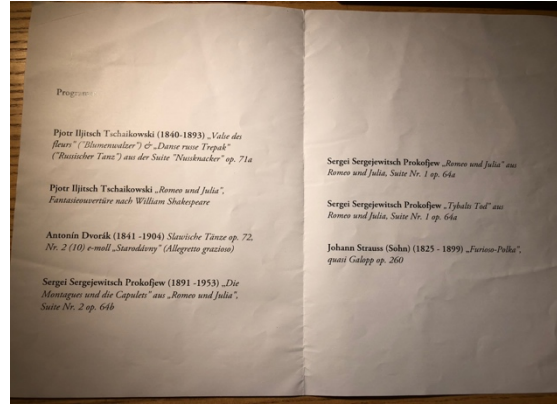 Programm
Pjotr Iljitsch Tschaikowski (1840-1893) „Valse des
fleurs" ("Blumenwalzer") & „Danse russe Trepak"
("Russischer Tanz") aus der Suite "Nussknacker" op. 71a
Pjotr Iljitsch Tschaikowski „Romeo und Julia",
Fantasieouvertüre nach William Shakespeare
Antonín Dvorák (1841 -1904) Slawische Tänze op. 72,
Nr. 2 (10) e-moll „Starodávny" (Allegretto grazioso)
Sergei Sergejewitsch Prokofjew (1891 -1953) „Die
Montagues und die Capulets" aus „Romeo und Julia",
Suite Nr. 2 op. 64b
Sergei Sergejewitsch Prokofjew „Romeo und Julia" aus
Romeo und Julia, Suite Nr. 1 op. 64a
Sergei Sergejewitsch Prokofjew „Tybalts Tod" aus
Romeo und Julia, Suite Nr. 1 op. 64a
Johann Strauss (Sohn) (1825 - 1899) „Furioso-Polka",
quasi Galopp op. 260